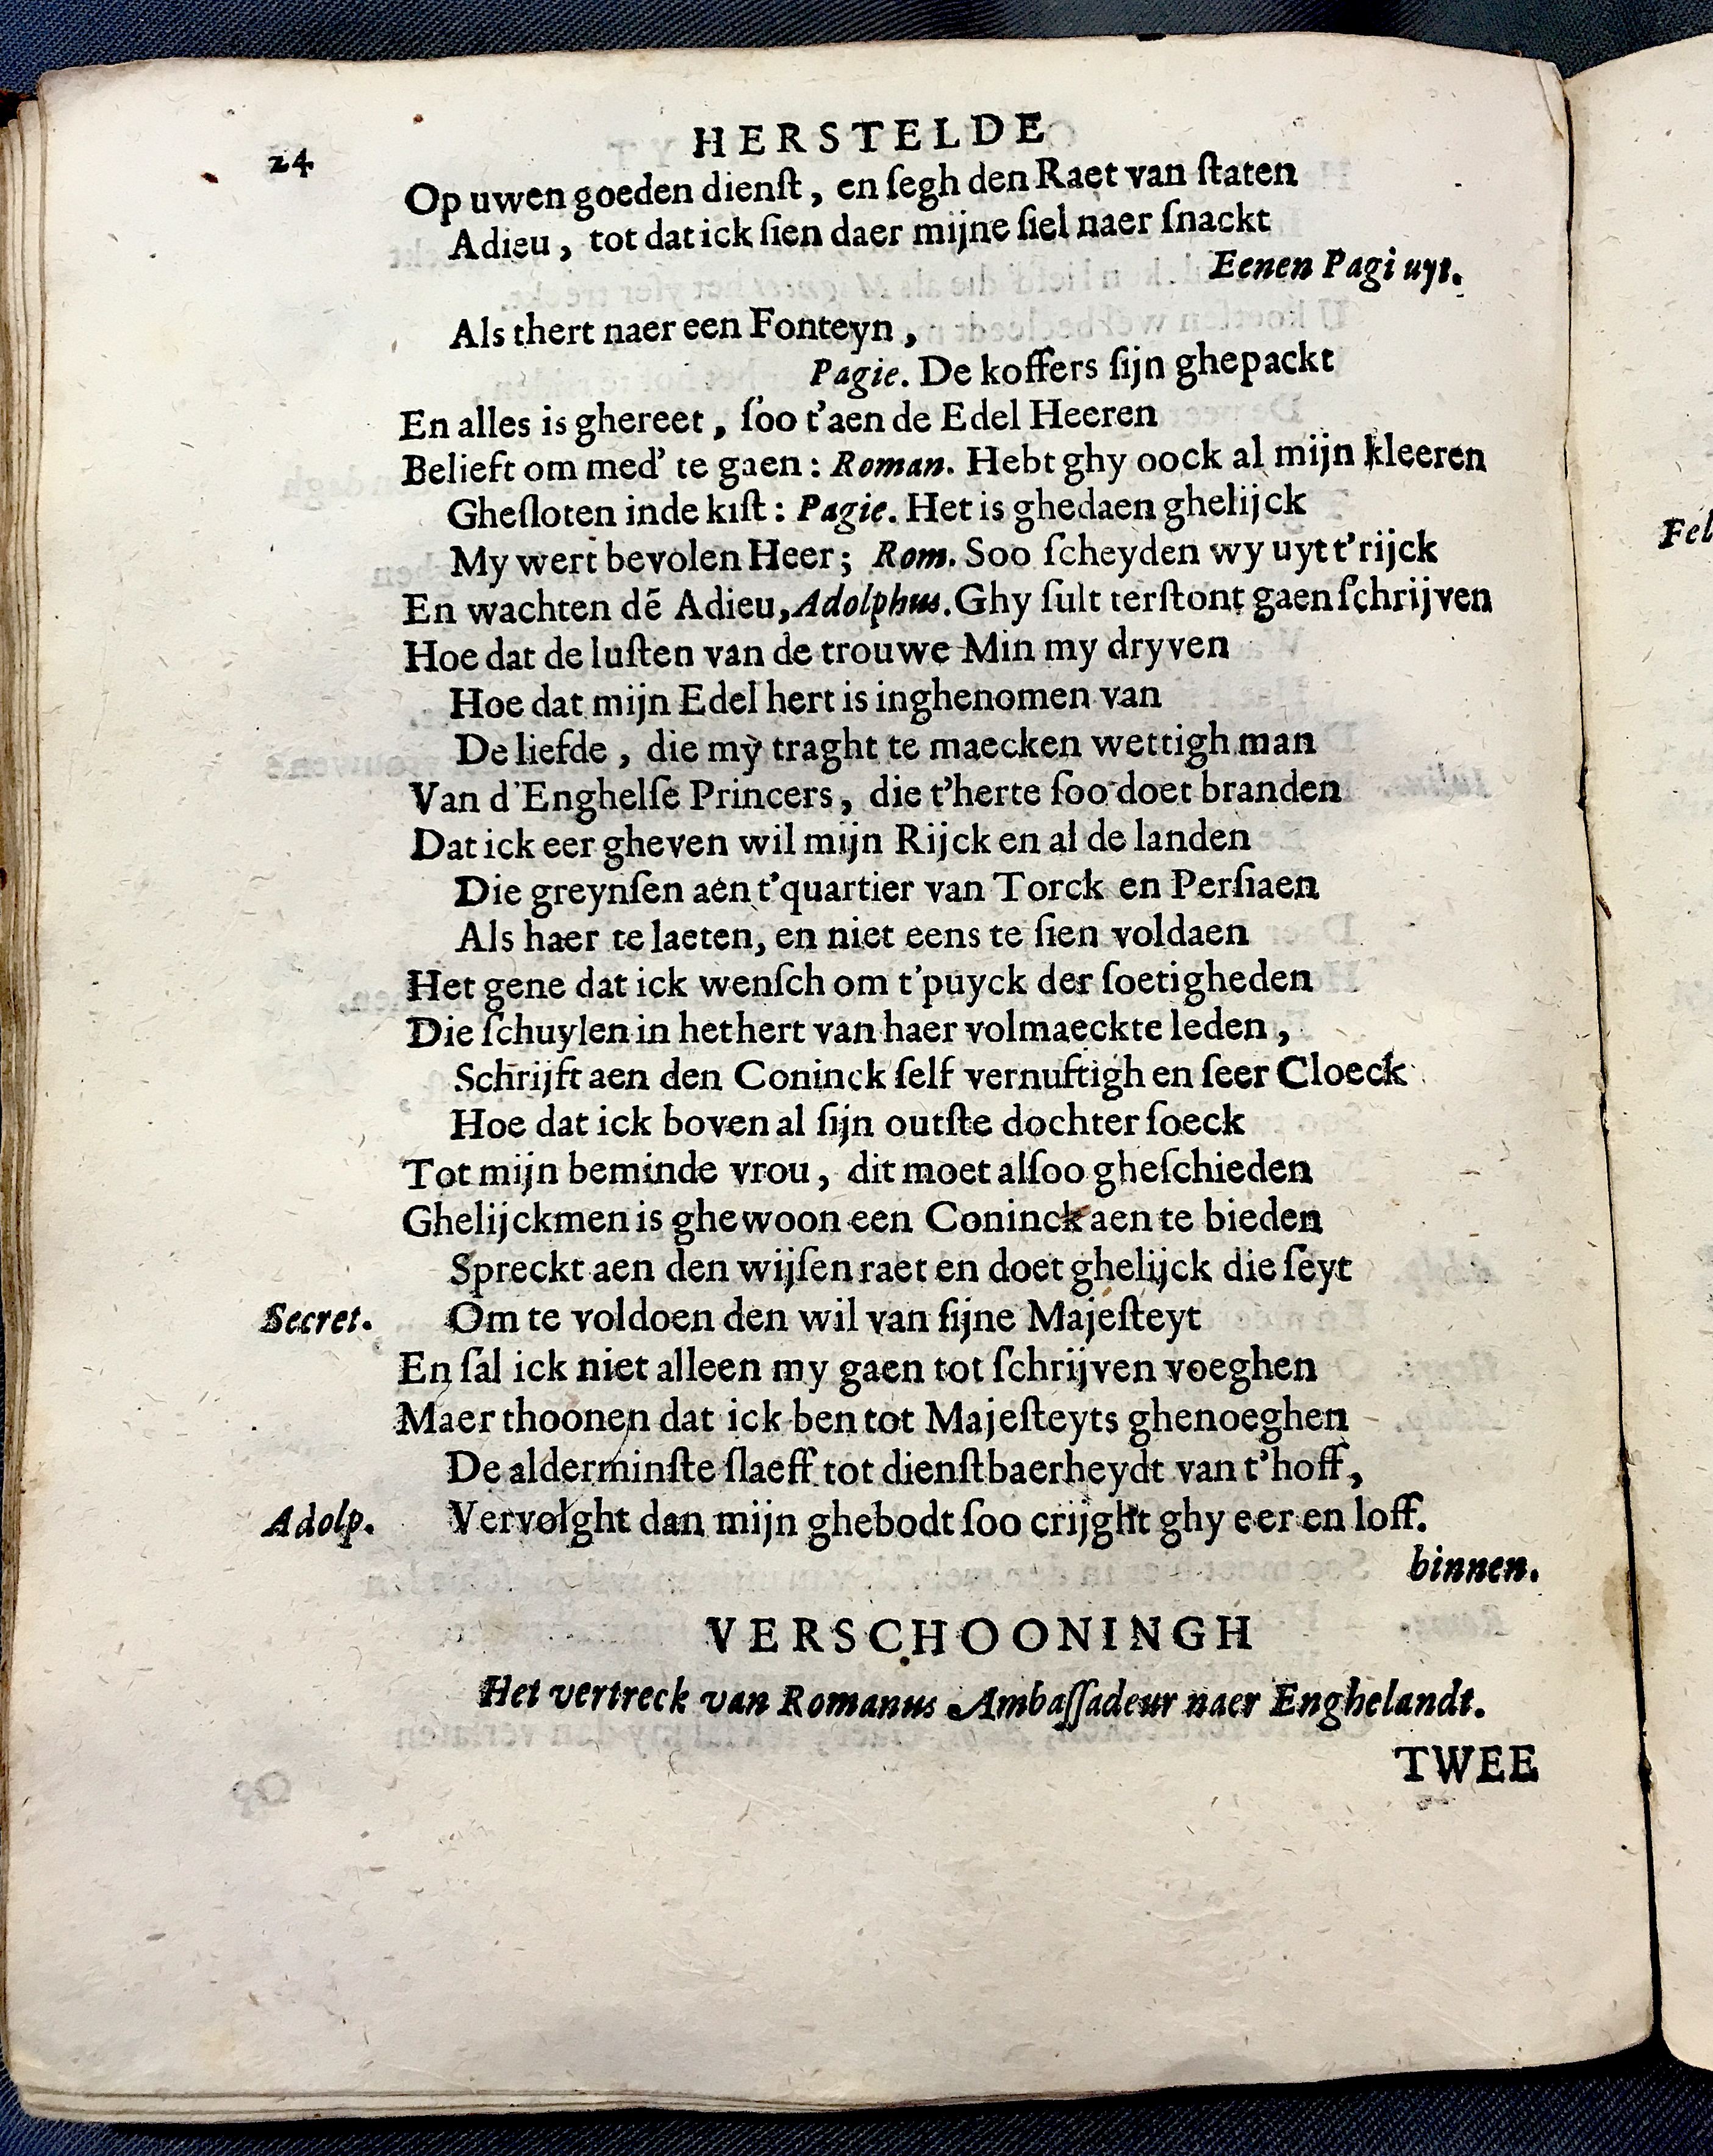 24 HERSTELDE
Op uwen goeden dienſt, en ſegh den Raet van ſtaten
Adieu, tot dat ick ſien daer mijne ſiel naer ſnackt
Eenen Pagi uyt.
Als thert naer een Fonteyn,
Pagie. De koffers ſijn ghepackt
En alles is ghereet, ſoo t'aen de Edel Heeren
Belieft om med' te gaen: Roman. Hebt ghy oock al mijn kleeren
Gheſloten inde kiſt: Pagie. Het is ghedaen ghelijck
My wert bevolen Heer; Rom. Soo ſcheyden wy uyt t'rijck
En wachten dē Adieu, Adolphus. Ghy ſult terſtont gaen ſchrijven
Hoe dat de luſten van de trouwe Min my dryven
Hoe dat mijn Edel hert is inghenomen van
De liefde, die my traght te maecken wettigh man
Van d'Enghelſe Princers, die t'herte ſoo doet branden
Dat ick eer gheven wil mijn Rijck en al de landen
Die greynſen aen t'quartier van Torck en Perſiaen
Als haer te laeten, en niet eens te ſien voldaen
Het gene dat ick wenſch om t'puyck der ſoetigheden
Die ſchuylen in het hert van haer volmaeckte leden,
Schrijft aen den Coninck ſelf vernuftigh en ſeer Cloeck
Hoe dat ick boven al ſijn outſte dochter ſoeck
Tot mijn beminde vrou, dit moet alſoo gheſchieden
Ghelijckmen is ghewoon een Coninck aen te bieden
Spreckt aen den wijſen raet en doet ghelijck die ſeyt
Secret. Om te voldoen den wil van ſijne Majeſteyt
En ſal ick niet alleen my gaen tot ſchrijven voeghen
Maer thoonen dat ick ben tot Majeſteyts ghenoeghen
De alderminſte ſlaeff tot dienſtbaerheydt van t'hoff,
Adolp. Vervolght dan mijn ghebodt ſoo crijght ghy eer en loff.
binnen.
VERSCHOONINGH
Het vertreck van Romanus Ambaſſadeur naer Enghelandt.
TWEE
Fel